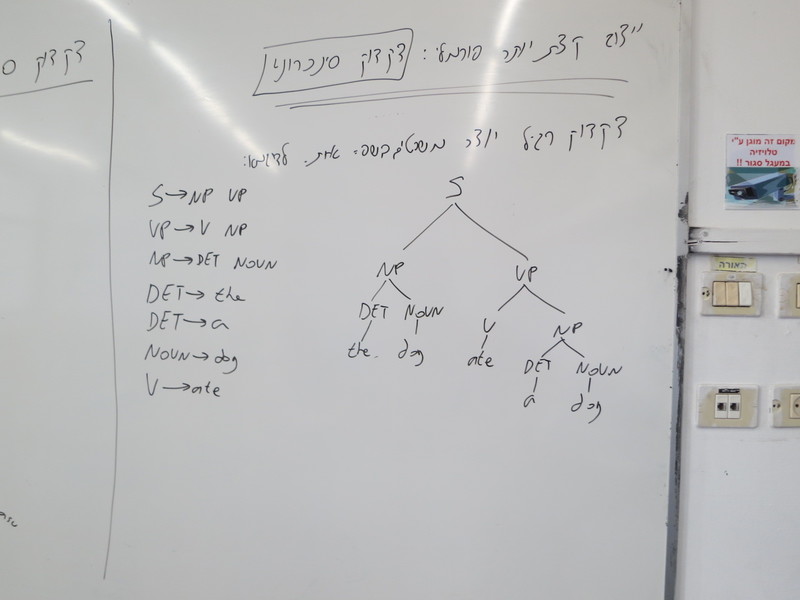 ייצוג קצת יותר פורמלי: דקדוק סינכרוני
דקדוק רגיל יוצר משפטים בשפה אחת. לדוגמא:
S→NP VP
VP→V NP
NP→DET NOUN
DET→the
DET→a
NOUN→dog
V→ate
S
NP VP
DET NOUN V NP
the dog ate DET NOUN
a dog
דקדוק ס
מקום זה מוגן ע"י
טלויזיה
במעגל סגור !!
תאורה